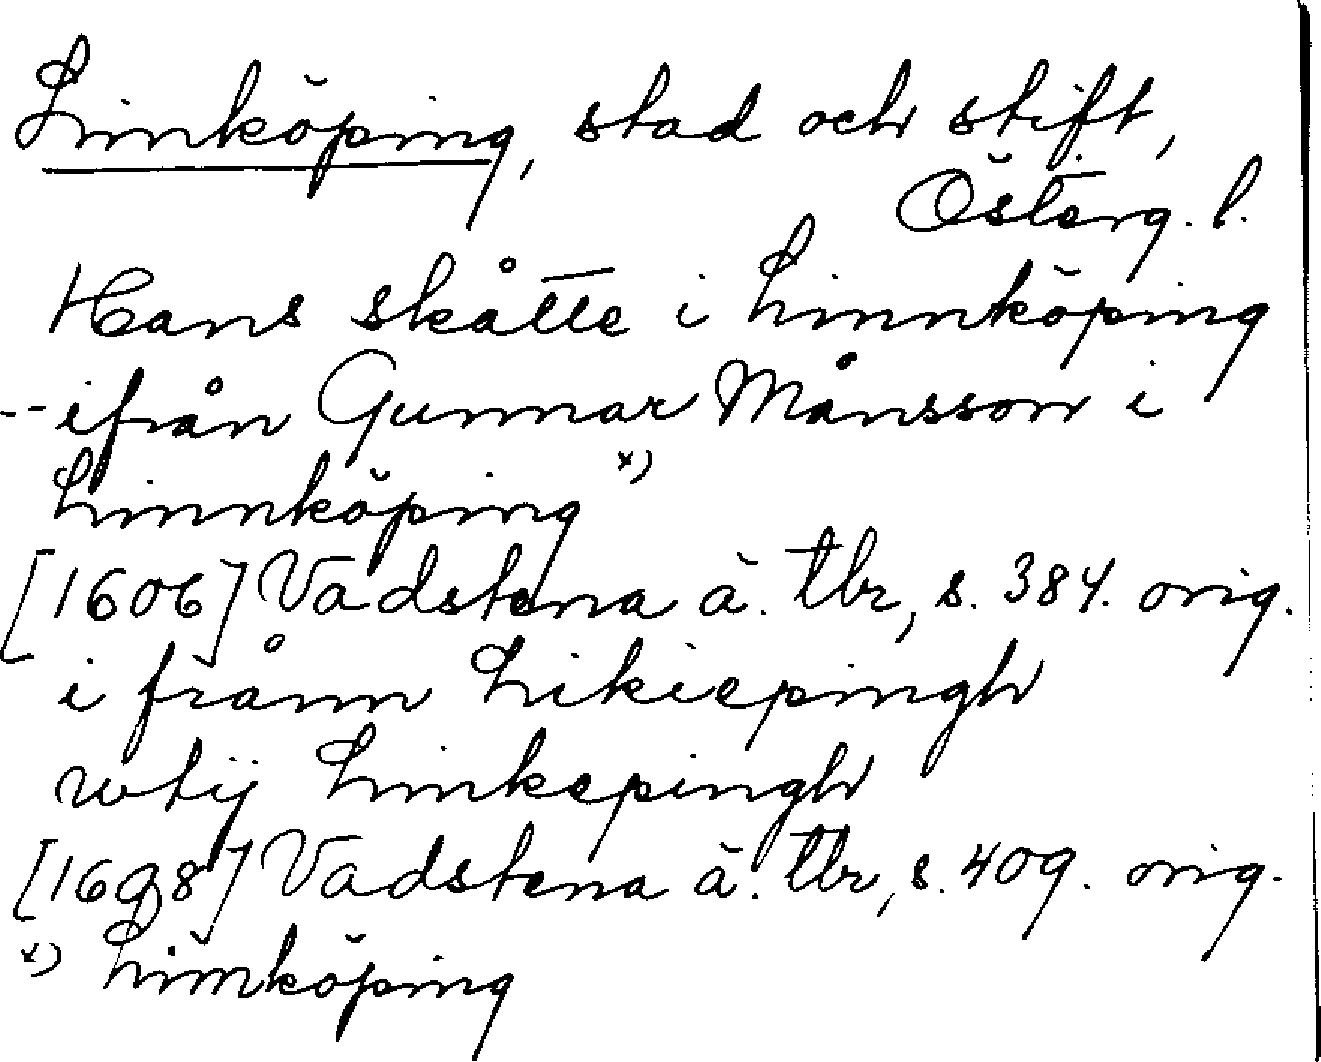 Linköping, stad och stift,
Österg. l.
Hans skåtte i Linnköping
-- ifrån Gunnar Månsson i
Linnköping x)
[1606] Vadstena ä. tbr, s. 384. orig.
i frånn Likiepingh
wtij Linkepingh
[1608] Vadstena ä. tbr, s. 409. orig.
x) Linköping